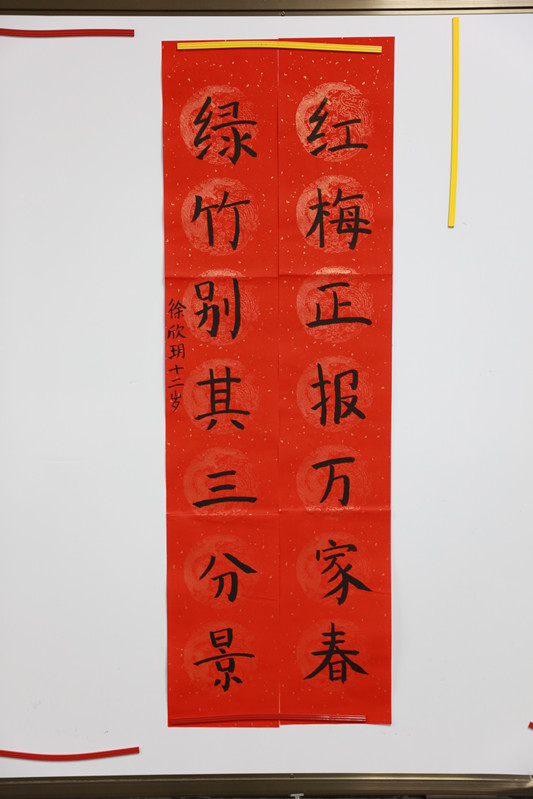 红梅正报万家春
绿竹别其三分景
徐欣玥十二岁